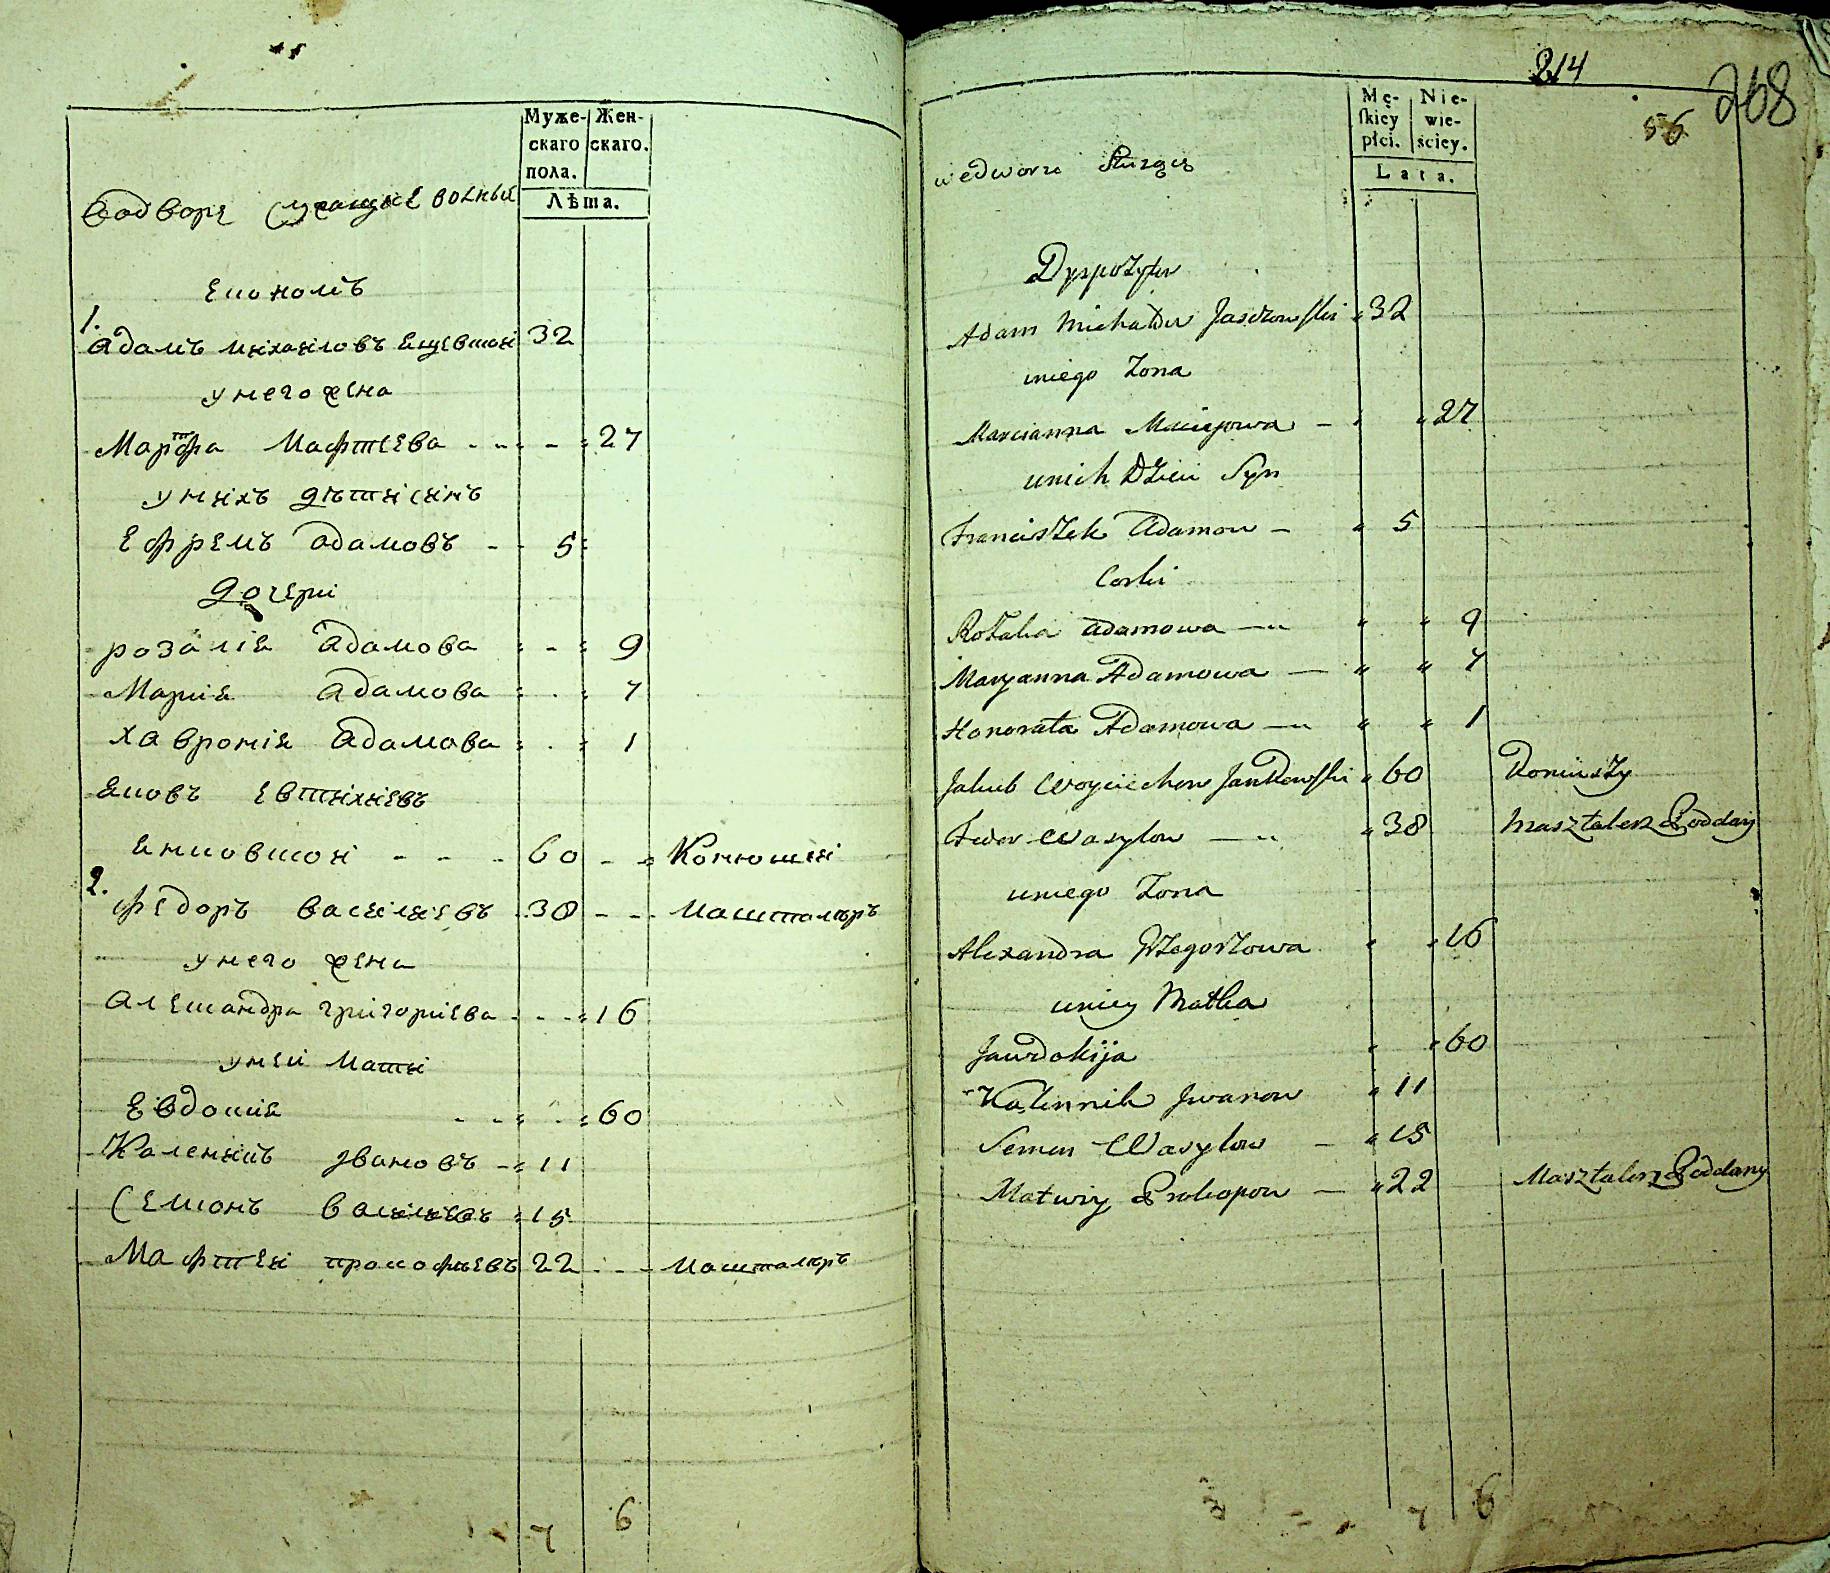 Муже-
скаго
пола.
Жен-
скаго.
Лѣта.
водворѣ служащие волные
Економъ
1. Адамъ михаиловъ 32
унего жена
Марфа Мафтѣева 27
унихъ дѣти синъ
Ефремъ адамовъ 5
дочери
розалия Адамова 9
Мария Адамова 7
хаврония Адамова 1
Яковъ Евтихиевъ
Янковский 60 Конюший
2. Федоръ василиевъ 38 Машталиръ
унего жена
Александра григориева 16
уней мати
Евдокия 60
Каленикъ Ивановъ 11
Семионъ василиевъ 15
Мафтей прокофиевъ 22 Машталиръ
7 6
214
268
56
Mę-
skiey
płci.
Nie-
wie-
ściey.
Lata.
wedworze Służący
Dyspozytor
Adam Michałow Jaszowski 32
uniego Zona
Marcianna Maciejowa 27
unich Dzieci Syn
Franciszek Adamow 5
Corki
Rozalia Adamowa 9
Maryanna Adamowa 7
Honorata Adamowa 1
Jakub Woyciechow Jankowski 60 Koniuszy
Fedor Wasylow 38 Masztalerz Poddany
uniego Zona
Alexandra Grzegorzowa 16
uniey Matka
Jawdokija 60
Kalinnik Jwanow 11
Semen Wasylow 15
Matwiy Prokopow 22 Masztalerz Poddany
7 6